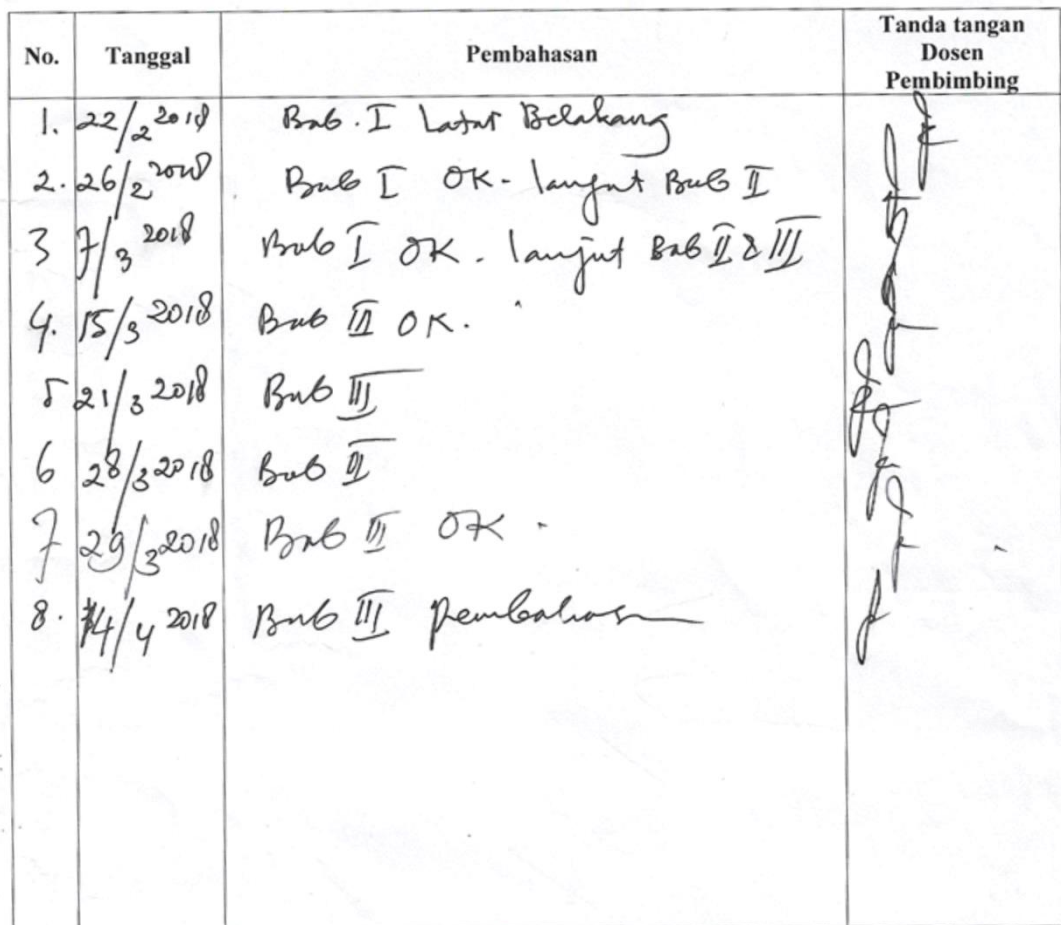 No. Tanggal Pembahasan Tanda tangan Dosen Pembimbing
1. 22/2 2018 Bab. I Latar Belakang
2. 26/2 2018 Bab I OK - lanjut Bab II
3 7/3 2018 Bab I OK - lanjut Bab II & III
4. 15/3 2018 Bab III OK.
5 21/3 2018 Bab III
6 28/3 2018 Bab
7 29/3 2018 Bab OK
8. 4/4 2018 Bab III pembahasan